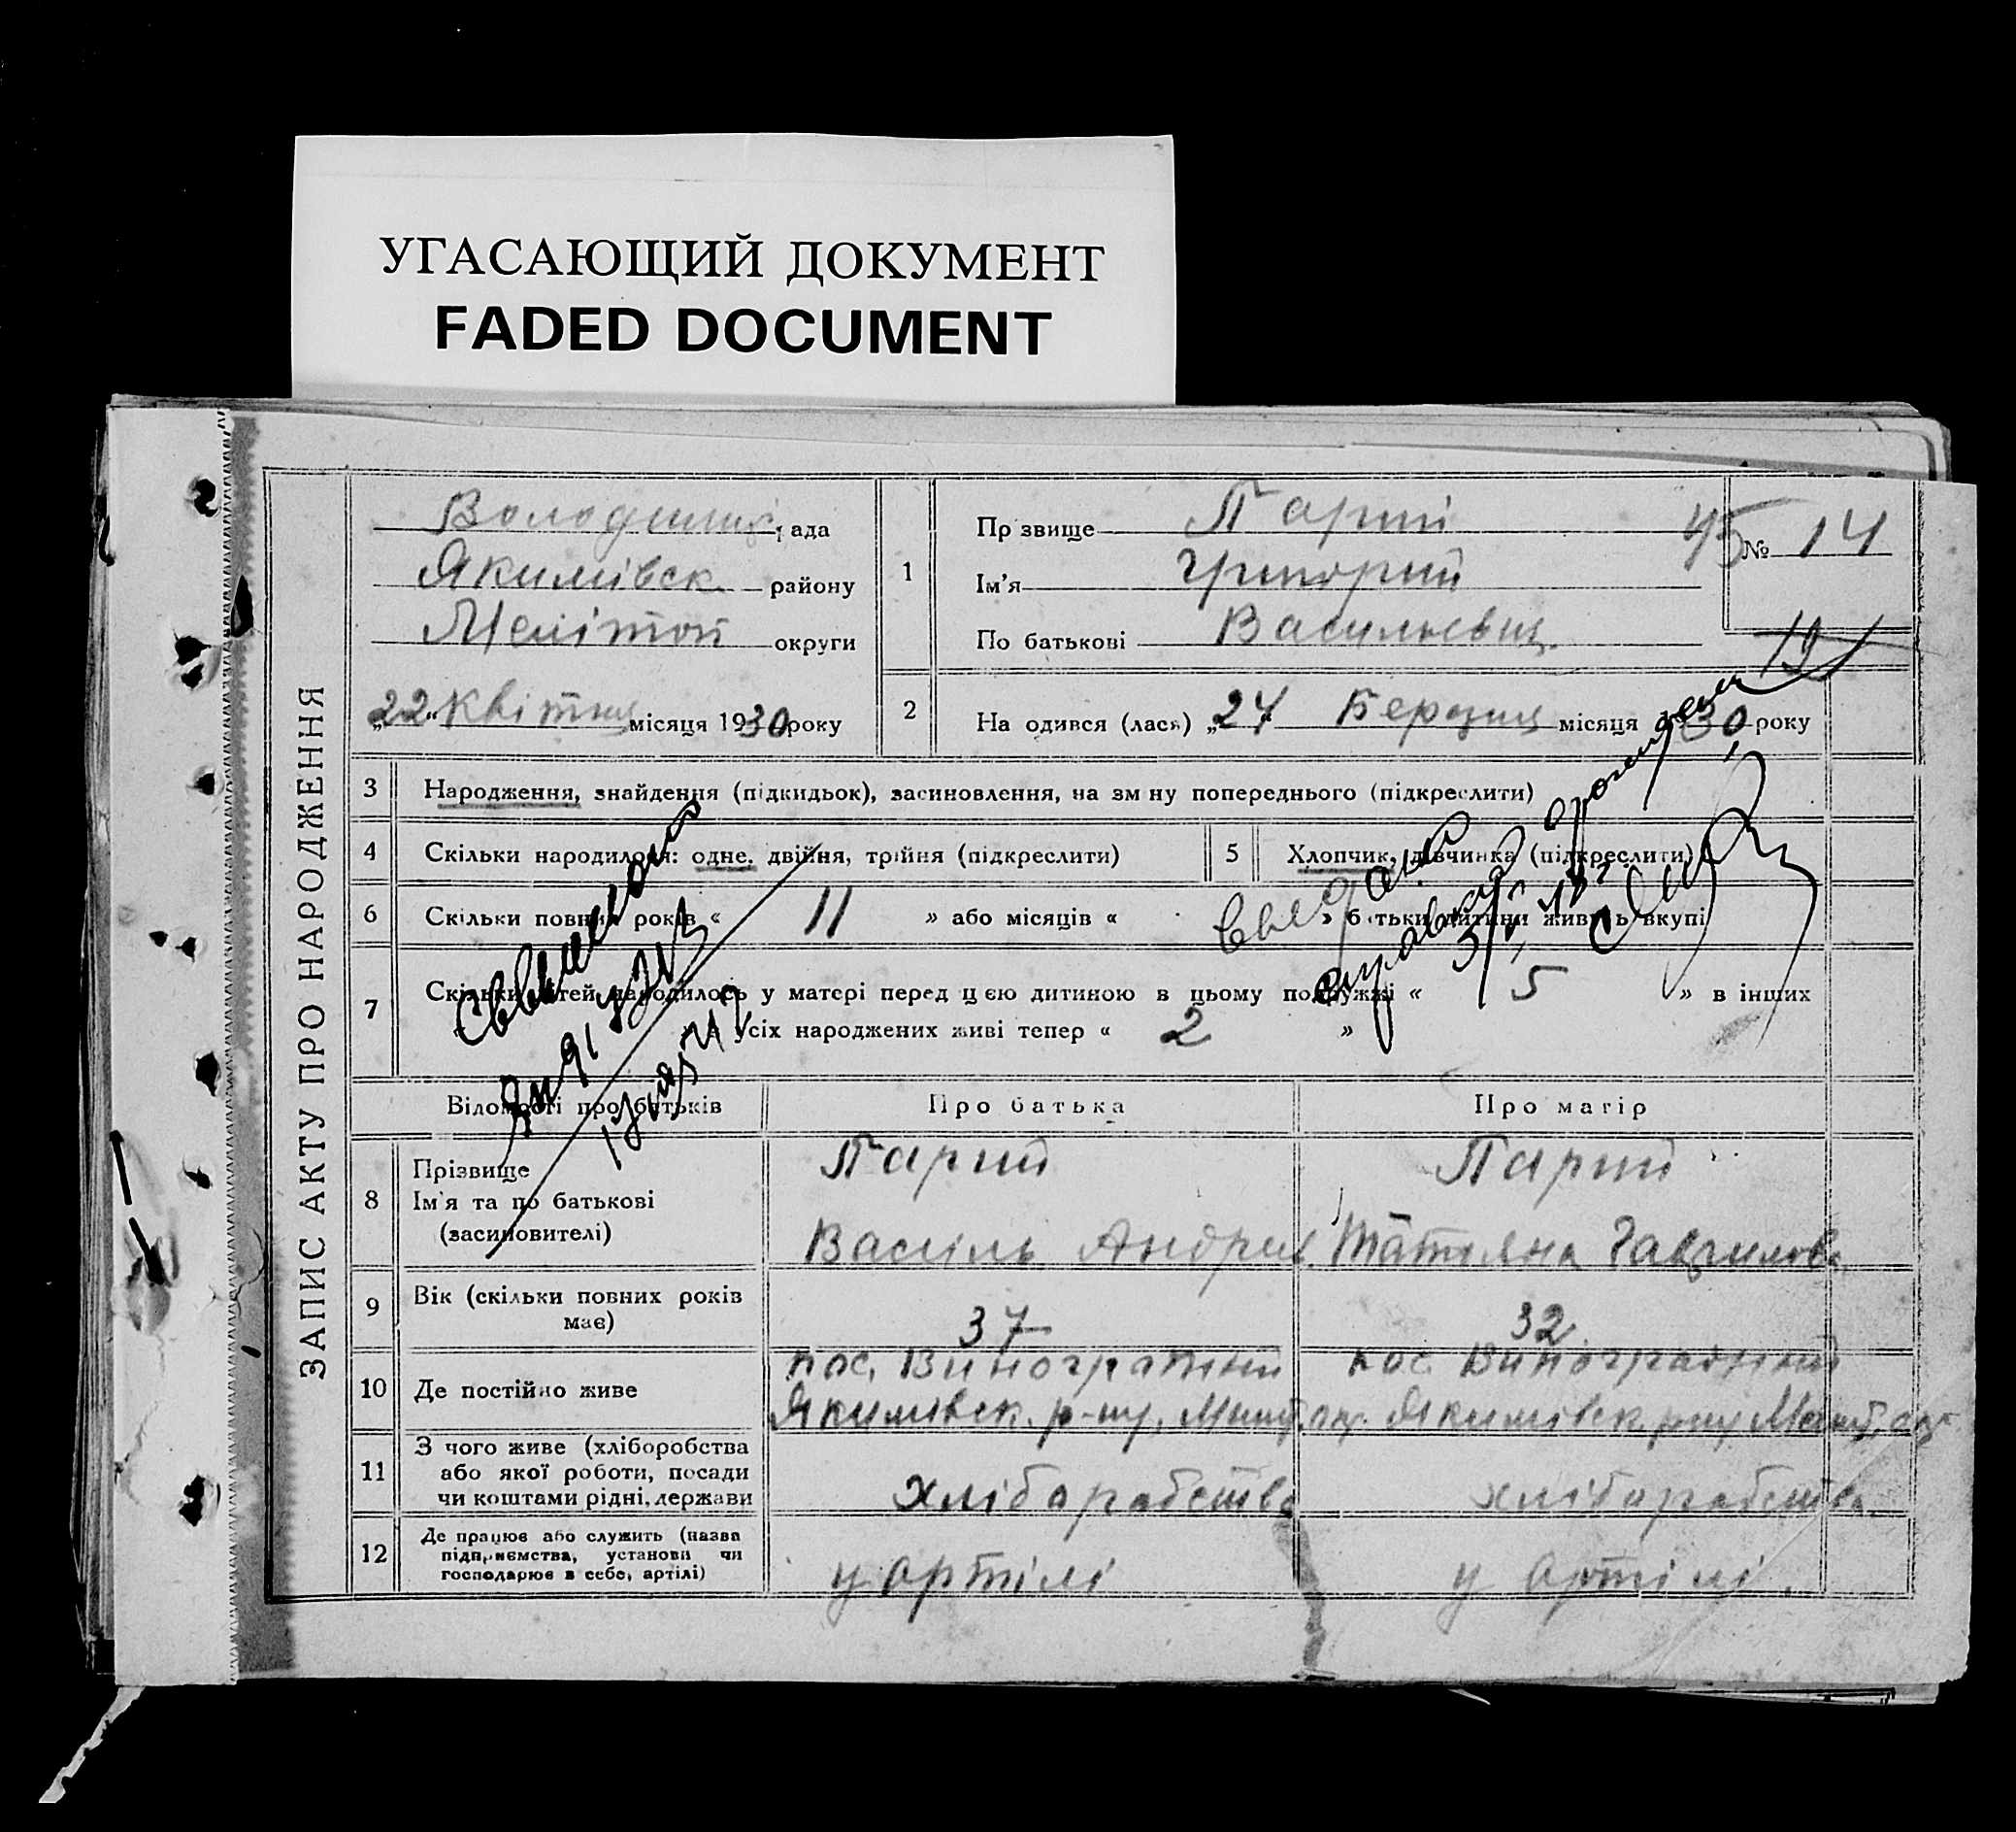 УГАСАЮЩИЙ ДОКУМЕНТ
FADED DOCUMENT
ЗАПИС АКТУ ПРО НАРОДЖЕННЯ
ада
Якимівск. району
Мелітоп округи
„22“ Квітня місяця 1930 року
1
Пр звище Парий
Ім'я Григорий
По батькові Васильевич
45 № 14
191
2
На одився (лася) „27 Березня місяця 30 року
3 Народження, знайдення (підкидьок), засиновлення, на зм ну попереднього (підкреслити)
4 Скільки народилося: одне, двійня, трійня (підкреслити)
5 Хлопчик, дівчинка (підкреслити)
6 Скільки повних років « 11 » або місяців « » б тьки дитини живуть вкупі
7 Скільки дітей народилось у матері перед цією дитиною в цьому подружжі « 5 » в інших
усіх народжених живі тепер « 2 »
Відомості про батьків
Про батька
Про матір
8 Прізвище
Ім'я та по батькові
(засиновителі)
Парий
Василь Андрив.
Парий
Татіяна Гаврилов
9 Вік (скільки повних років
має)
37
32.
10 Де постійно живе
пос. Виноградний
Якимівск. р-ну,
пос. Виноградний
Якимівск. р-ну
11 З чого живе (хліборобства
або якої роботи, посади
чи коштами рідні, держави
хліборобство
хліборобство
12 Де працює або служить (назва
підприємства, установи чи
господарює в себе, артілі)
у артілі
у артілі.